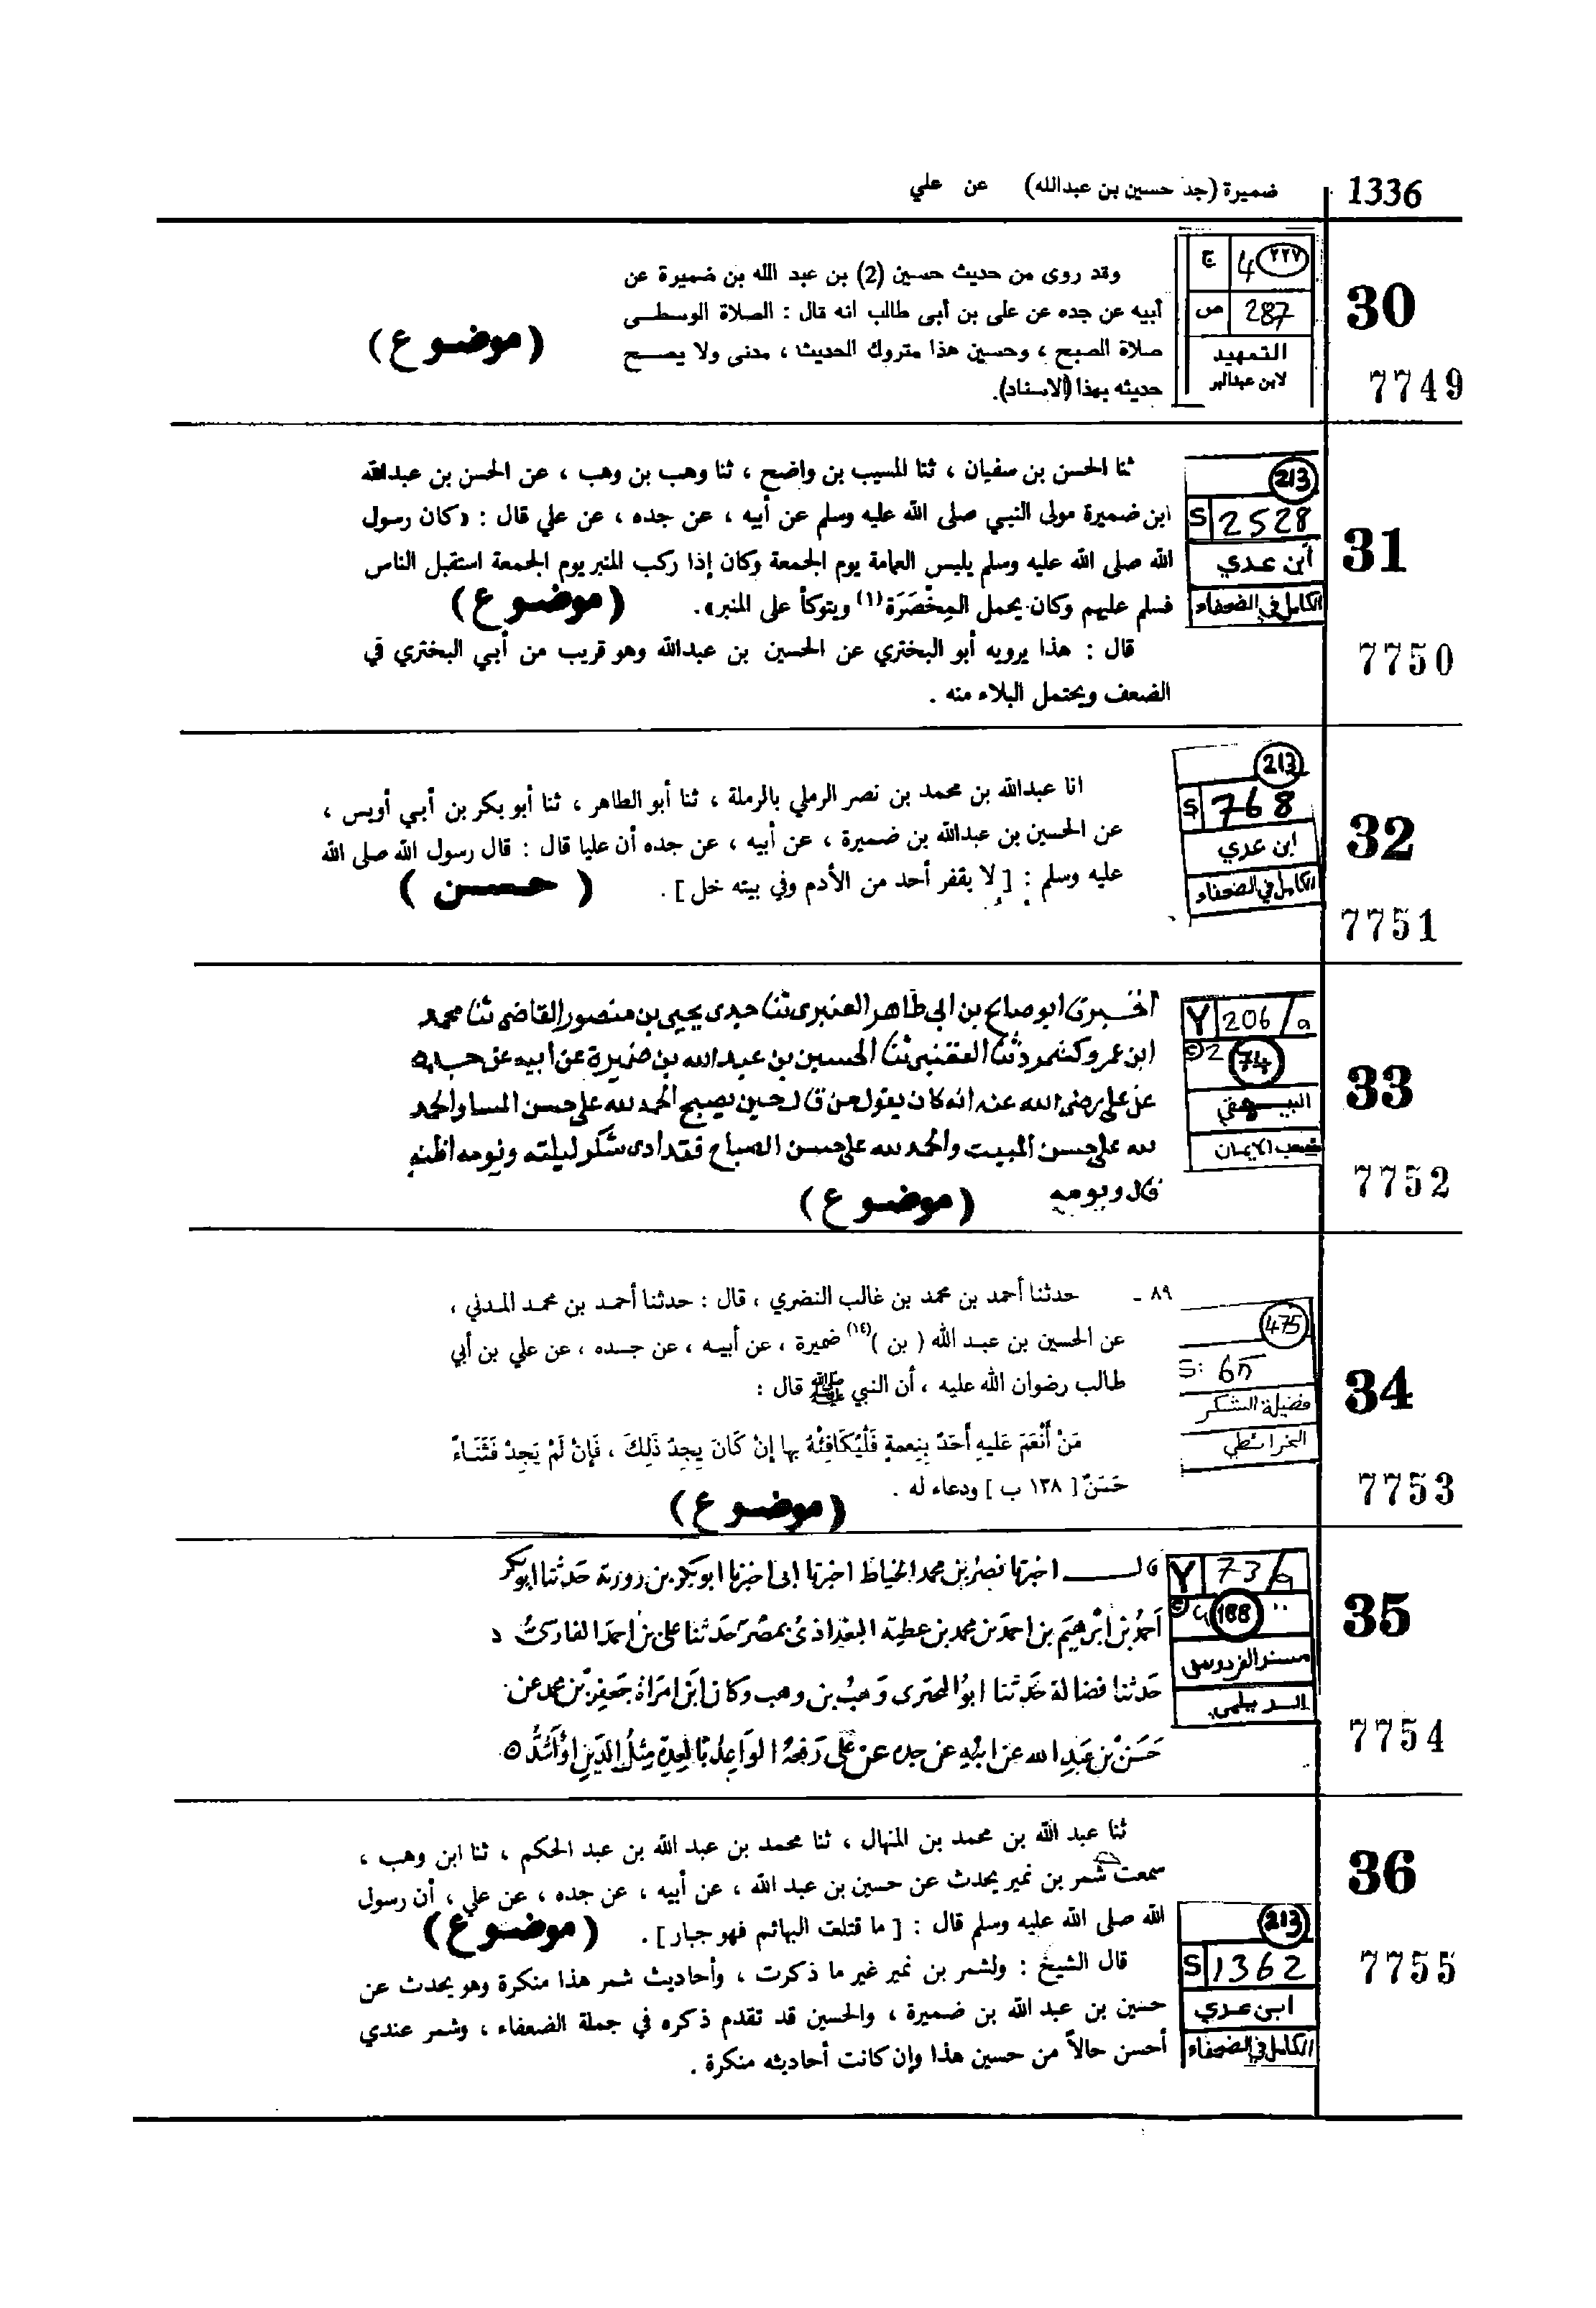 1336 ضميرة (جد حسين بن عبدالله) عن علي
30
7749
ج 4 ٢٢٧
ص 287
التمهيد
لابن عبدالبر
وقد روى من حديث حسين (2) بن عبد الله بن ضميرة عن
أبيه عن جده عن على بن أبى طالب انه قال : الصلاة الوسطى
صلاة الصبح ، وحسين هذا متروك الحديث ، مدنى ولا يصح
حديثه بهذا (الاسناد).
(موضوع)
31
7750
213
S 2528
ابن عدي
الكامل في الضعفاء
ثنا الحسن بن سفيان ، ثنا المسيب بن واضح ، ثنا وهب بن وهب ، عن الحسن بن عبدالله
ابن ضميرة مولى النبي صلى الله عليه وسلم عن أبيه ، عن جده ، عن علي قال : «كان رسول
الله صلى الله عليه وسلم يلبس العمامة يوم الجمعة وكان إذا ركب المنبر يوم الجمعة استقبل الناس
فسلم عليهم وكان يحمل المِخْصَرَة(١) ويتوكأ على المنبر».
(موضوع)
قال : هذا يرويه أبو البختري عن الحسين بن عبدالله وهو قريب من أبي البختري في
الضعف ويحتمل البلاء منه .
32
7751
213
S 768
ابن عدي
الكامل في الضعفاء
انا عبدالله بن محمد بن نصر الرملي بالرملة ، ثنا أبو الطاهر ، ثنا أبو بكر بن أبي أويس ،
عن الحسين بن عبدالله بن ضميرة ، عن أبيه ، عن جده أن عليا قال : قال رسول الله صلى الله
عليه وسلم : [ لا يقفر أحد من الأدم وفي بيته خل ] .
(حسن)
33
7752
Y 206/a
2 74
البيهقي
شعب الايمان
اخبرنا ابو صالح بن ابي طاهر العنبرى ثنا جدى يحيى بن منصور القاضى ثنا محمد
ابن عمرو كشمرد ثنا القعنبى ثنا الحسين بن عبد الله بن ضميرة عن ابيه عن جده
عن على رضى الله عنه انه كان يقول من قال حين يصبح الحمد لله على حسن المساء والحمد
لله على حسن المبيت والحمد لله على حسن الصباح فقد ادى شكر ليلته ويومه اظنه
قال ويومه
(موضوع)
34
7753
475
S: 65
فضيلة الشكر
الخرائطي
٨٩ ـ حدثنا أحمد بن محمد بن غالب النضري ، قال : حدثنا أحمد بن محمد المدني ،
عن الحسين بن عبد الله ( بن )(١٤) ضميرة ، عن أبيه ، عن جده ، عن علي بن أبي
طالب رضوان الله عليه ، أن النبي ﷺ قال :
مَنْ أُنْعَمَ عَليهِ أَحَدٌ بِنِعمةٍ فَلْيُكَافِئْهُ بها إنْ كَانَ يجِدُ ذَلِكَ ، فَإِنْ لَمْ يَجِدْ فَثَنَاءٌ
حَسَنٌ [ ١٣٨ ب ] ودعاء له .
(موضوع)
35
7754
Y 73/a
188
مسند الفردوس
الديلمي
قال اخبرنا نصر بن محمد الخياط اخبرنا ابى اخبرنا ابو بكر بن روزبة حدثنا ابو بكر
احمد بن ابرهيم بن احمد بن محمد بن عطية البغداذى بمصر حدثنا على بن احمد الفارسى
حدثنا فضالة حدثنا ابو البخترى وهب بن وهب وكان ابن امراة جعفر بن محمد عن
حسين بن عبد الله عن ابيه عن جده عن على رفعه الواعد بالعدة مثل الدين او اشد
36
7755
213
S 1362
ابن عدي
الكامل في الضعفاء
ثنا عبد الله بن محمد بن المنهال ، ثنا محمد بن عبد الله بن عبد الحكم ، ثنا ابن وهب ،
سمعت شمر بن نمير يحدث عن حسين بن عبد الله ، عن أبيه ، عن جده ، عن علي ، أن رسول
الله صلى الله عليه وسلم قال : [ ما قتلت البهائم فهو جبار ] .
(موضوع)
قال الشيخ : ولشمر بن نمير غير ما ذكرت ، وأحاديث شمر هذا منكرة وهو يحدث عن
حسين بن عبد الله بن ضميرة ، والحسين قد تقدم ذكره في جملة الضعفاء ، وشمر عندي
أحسن حالاً من حسين هذا وإن كانت أحاديثه منكرة .